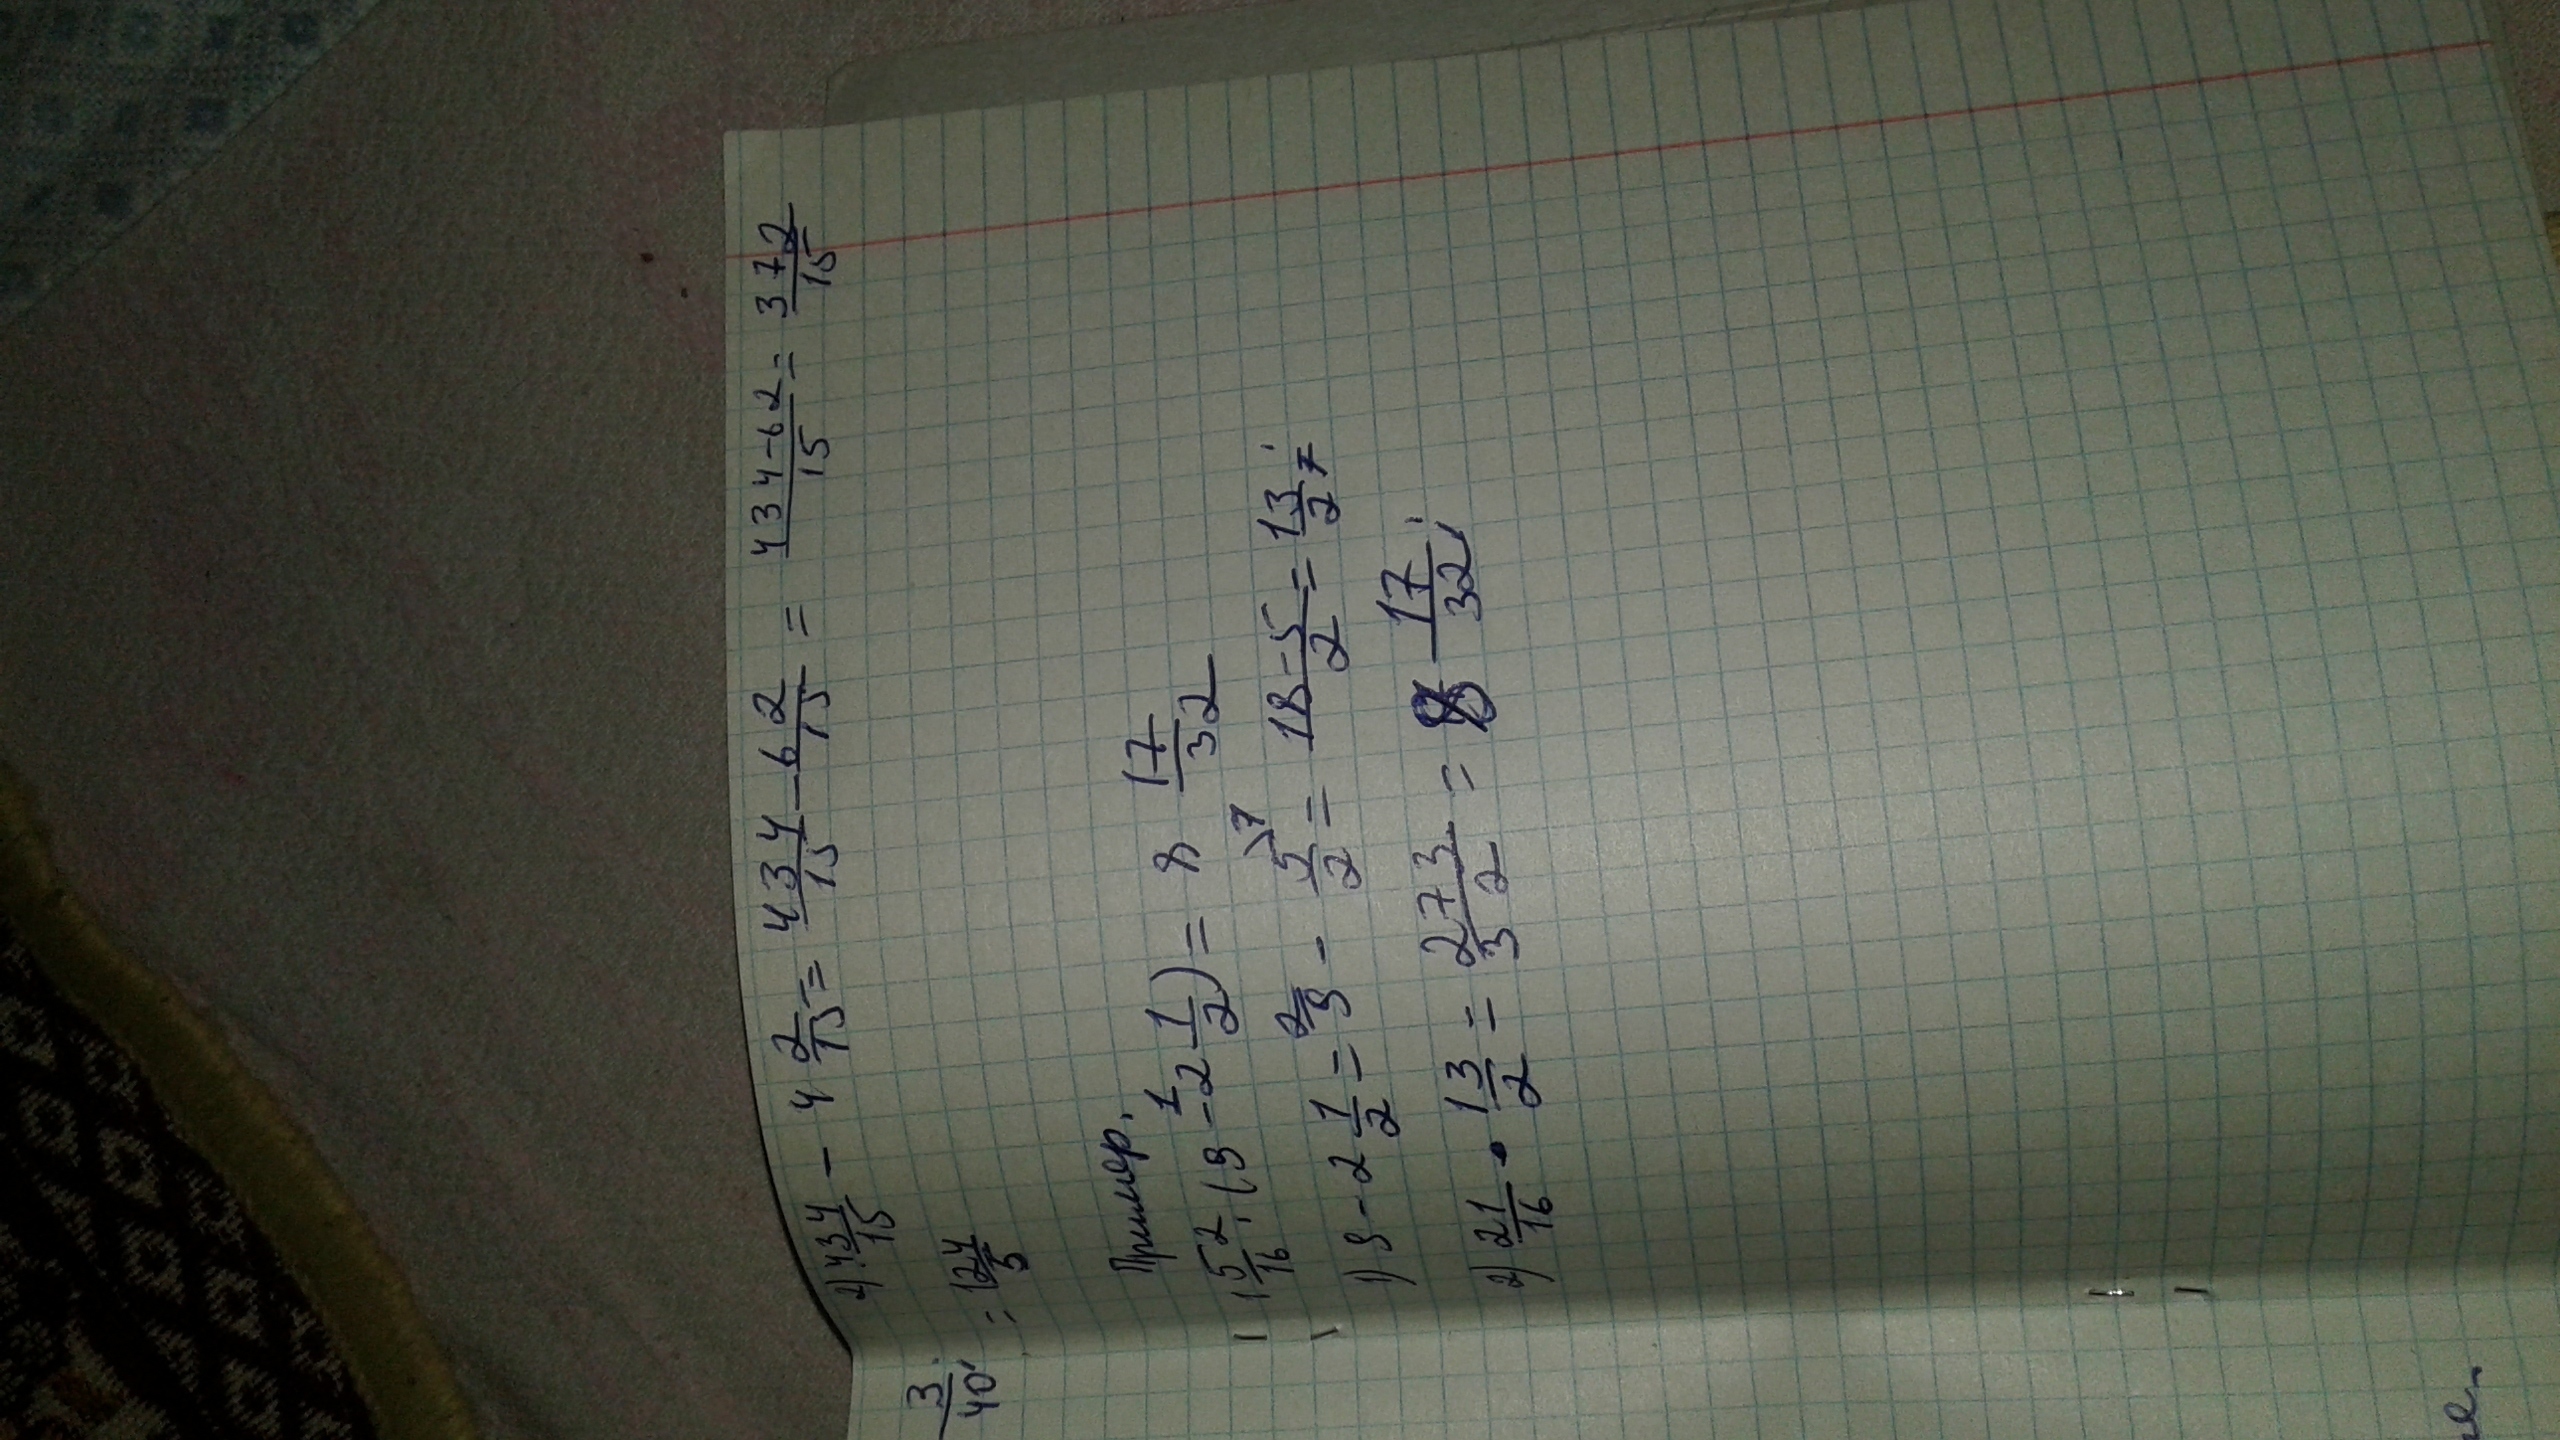 2) 434/15 - 4 2/15 = 434/15 - 62/15 = 434-62/15 = 372/15
= 124/5
3/40;
Пример.
1 5/16 · (9 - 2 1/2) = 8 17/32
1) 9 - 2 1/2 = 9 - 5/2 = 18-5/2 = 13/2;
2) 21/16 · 13/2 = 273/32 = 8 17/32;